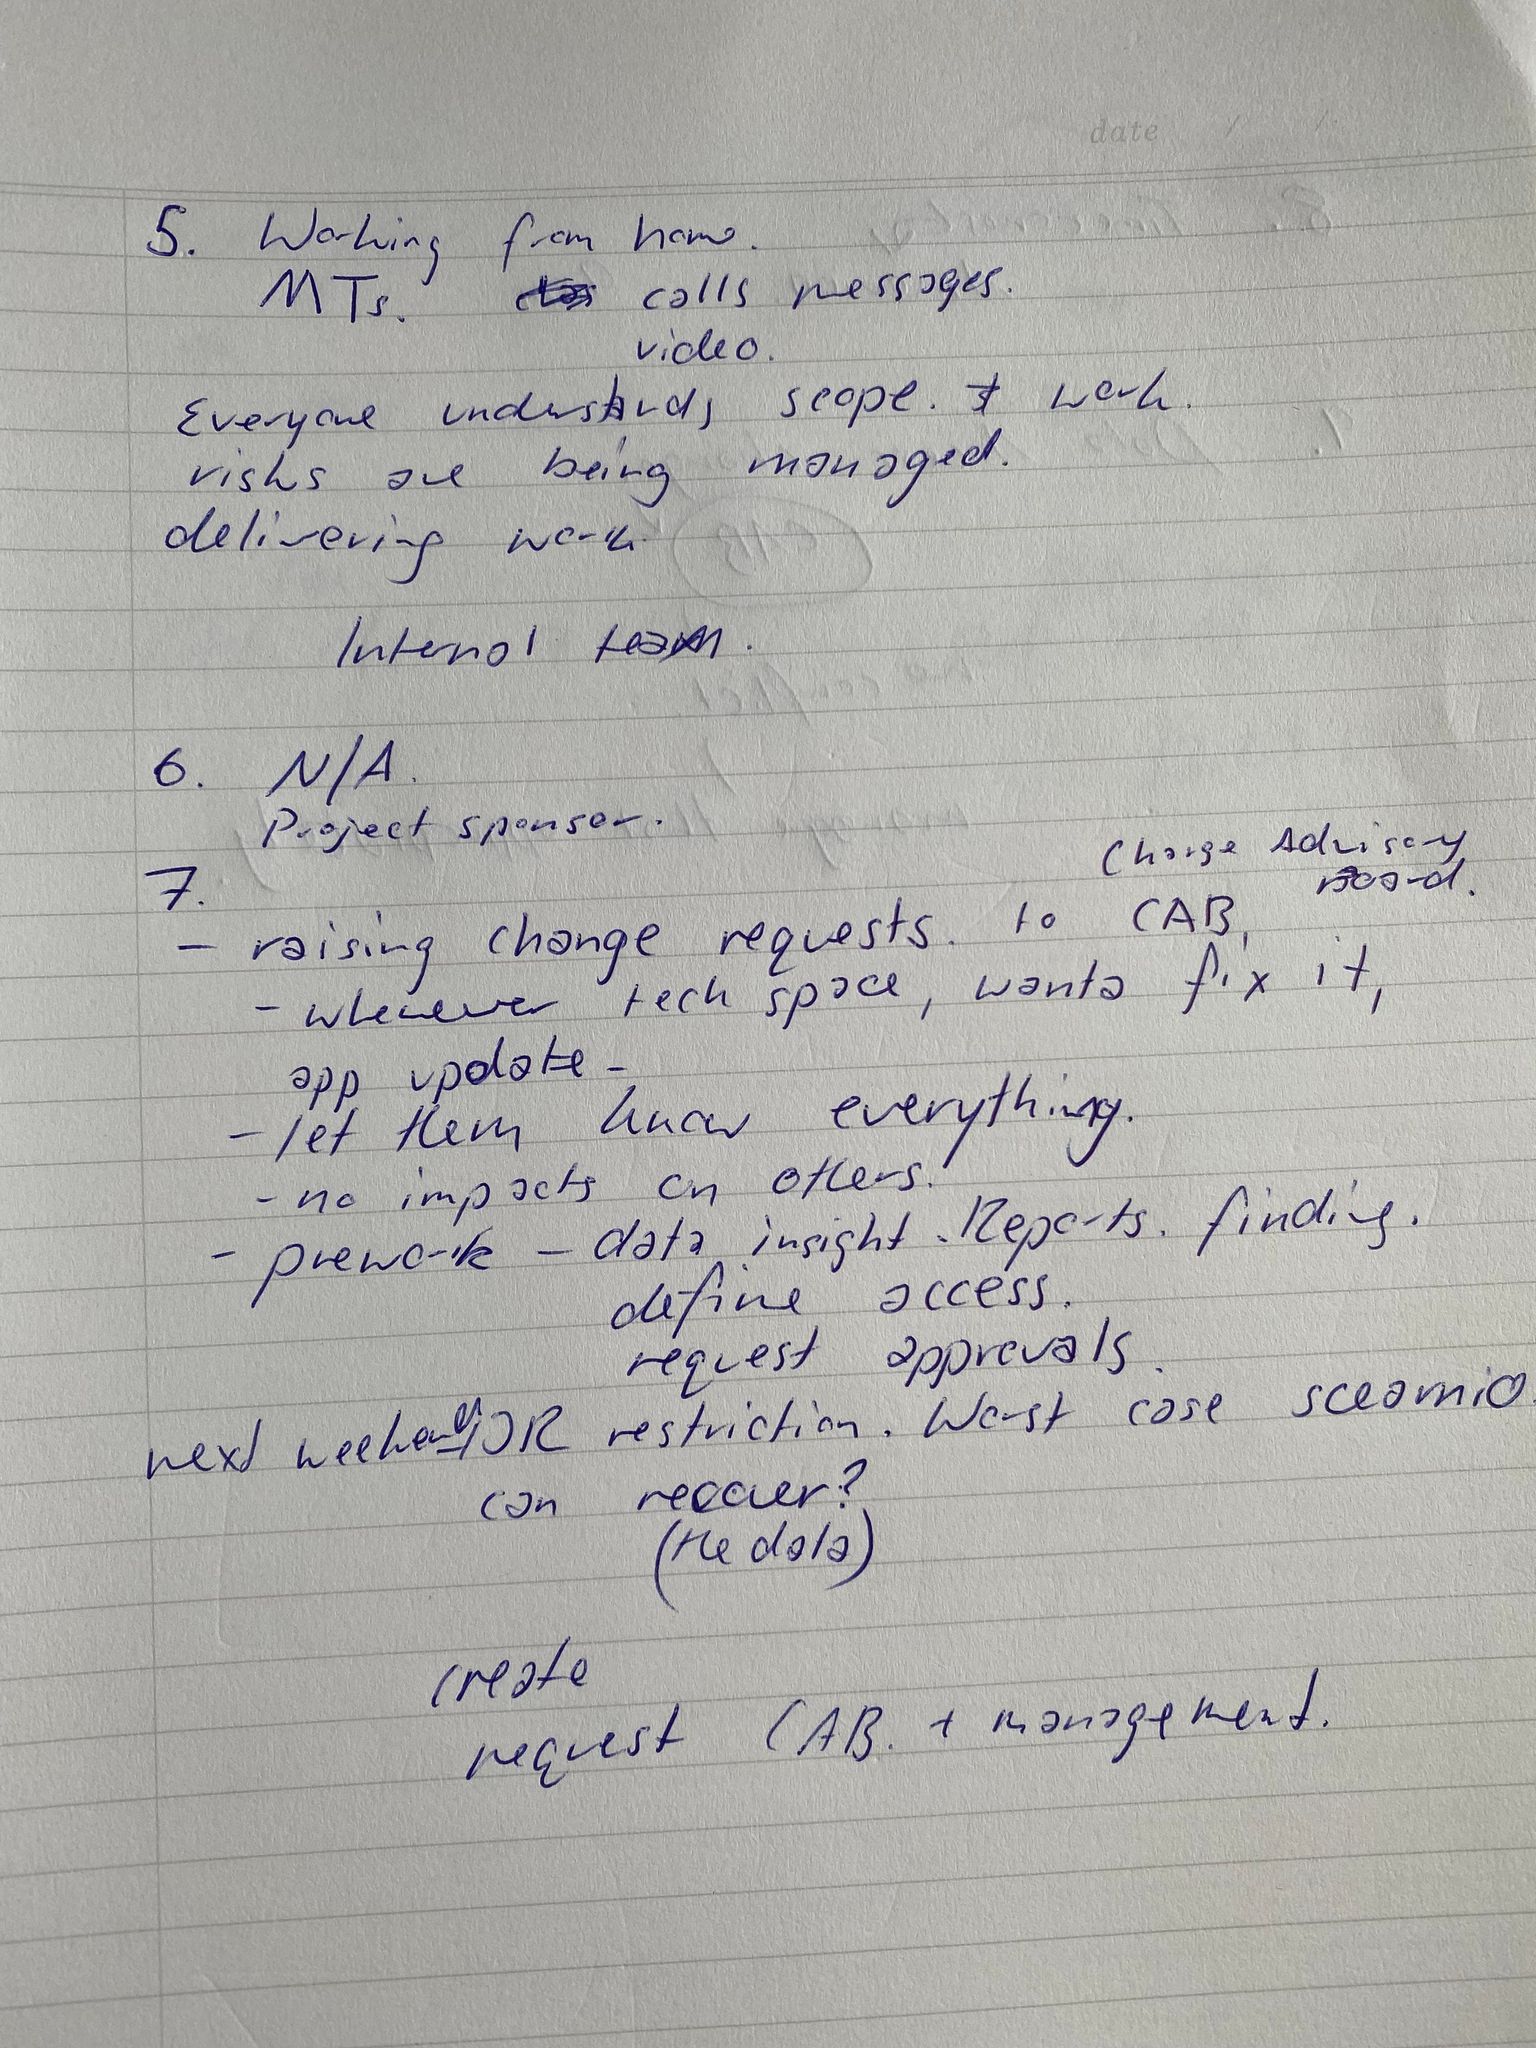 date / /
5. Working from home.
MTs. calls messages.
video.
Everyone understands scope. & work.
risks are being managed.
delivering work.
Internal team.
6. N/A.
Project sponsor.
7.
Change Advisory
Board.
- raising change requests. to CAB,
- whenever tech space, wanta fix it,
app update -
- let them know everything.
- no impacts on others.
- prework - data insight. Reports. finding.
define access.
request approvals.
next weekend DR restriction. Worst case sceamio.
can recover?
(the data)
create
request CAB. + management.